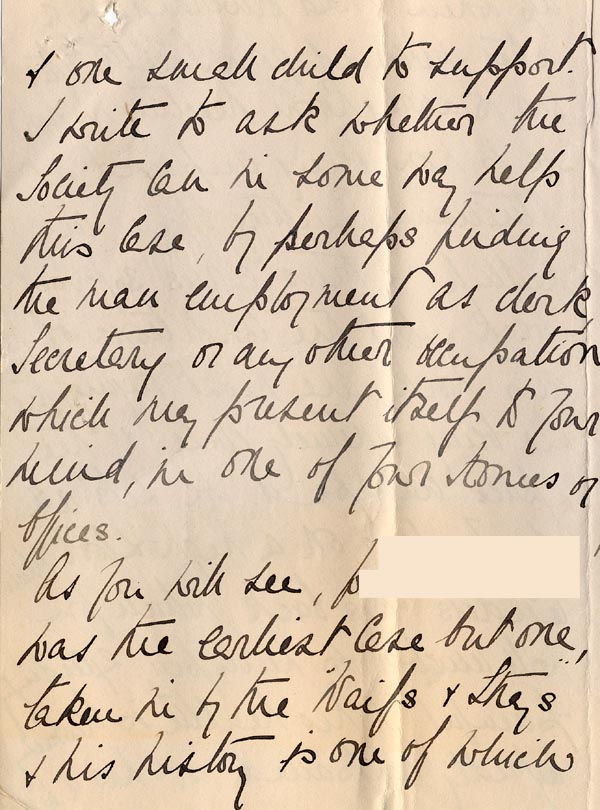 & one small child to support.
I write to ask whether the
Society can in some way help
this case, by perhaps finding
the man employment as clerk,
Secretary or any other occupation
which may present itself to your
mind, in one of your Homes or
offices.
As you will see,
was the earliest case but one,
taken in by the "Waifs & Strays"
& his history is one of which